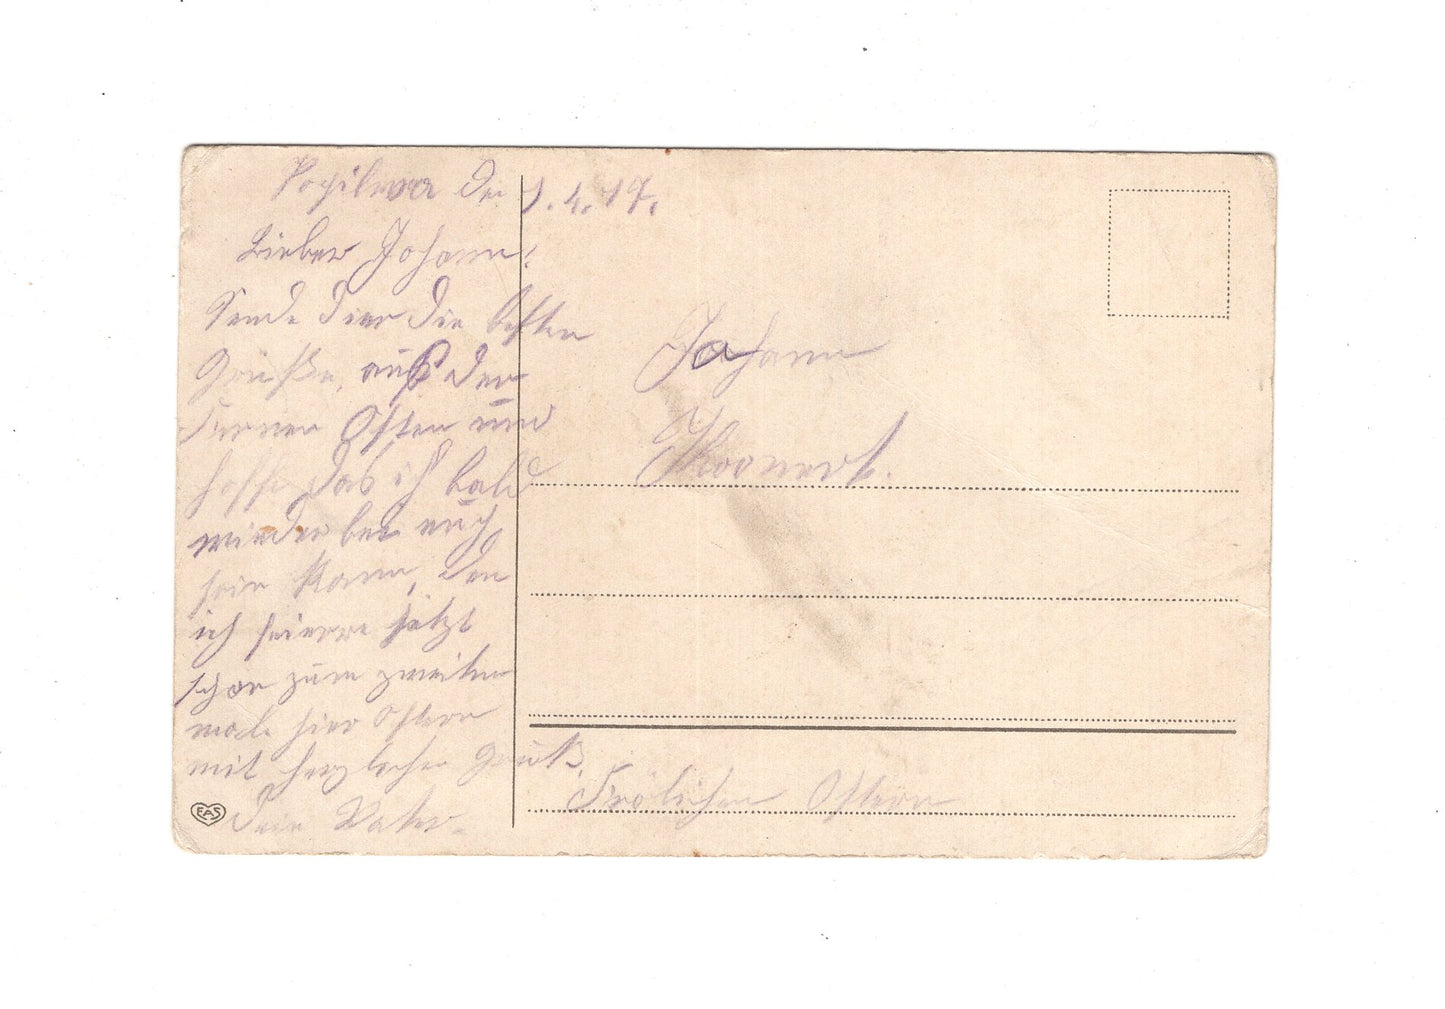 den 1.4.17.
Lieber Johann!
Sende dier die besten
Grüße, auß der
fernen Osten und
hoffe das ich bald
wieder bei euch
sein kann, den
ich feierre jetzt
schon zum zweiten
mal hier Ostern
mit herzlichen Gruß.
Dein Vater.
Johann
Frölichen Ostern
EAS